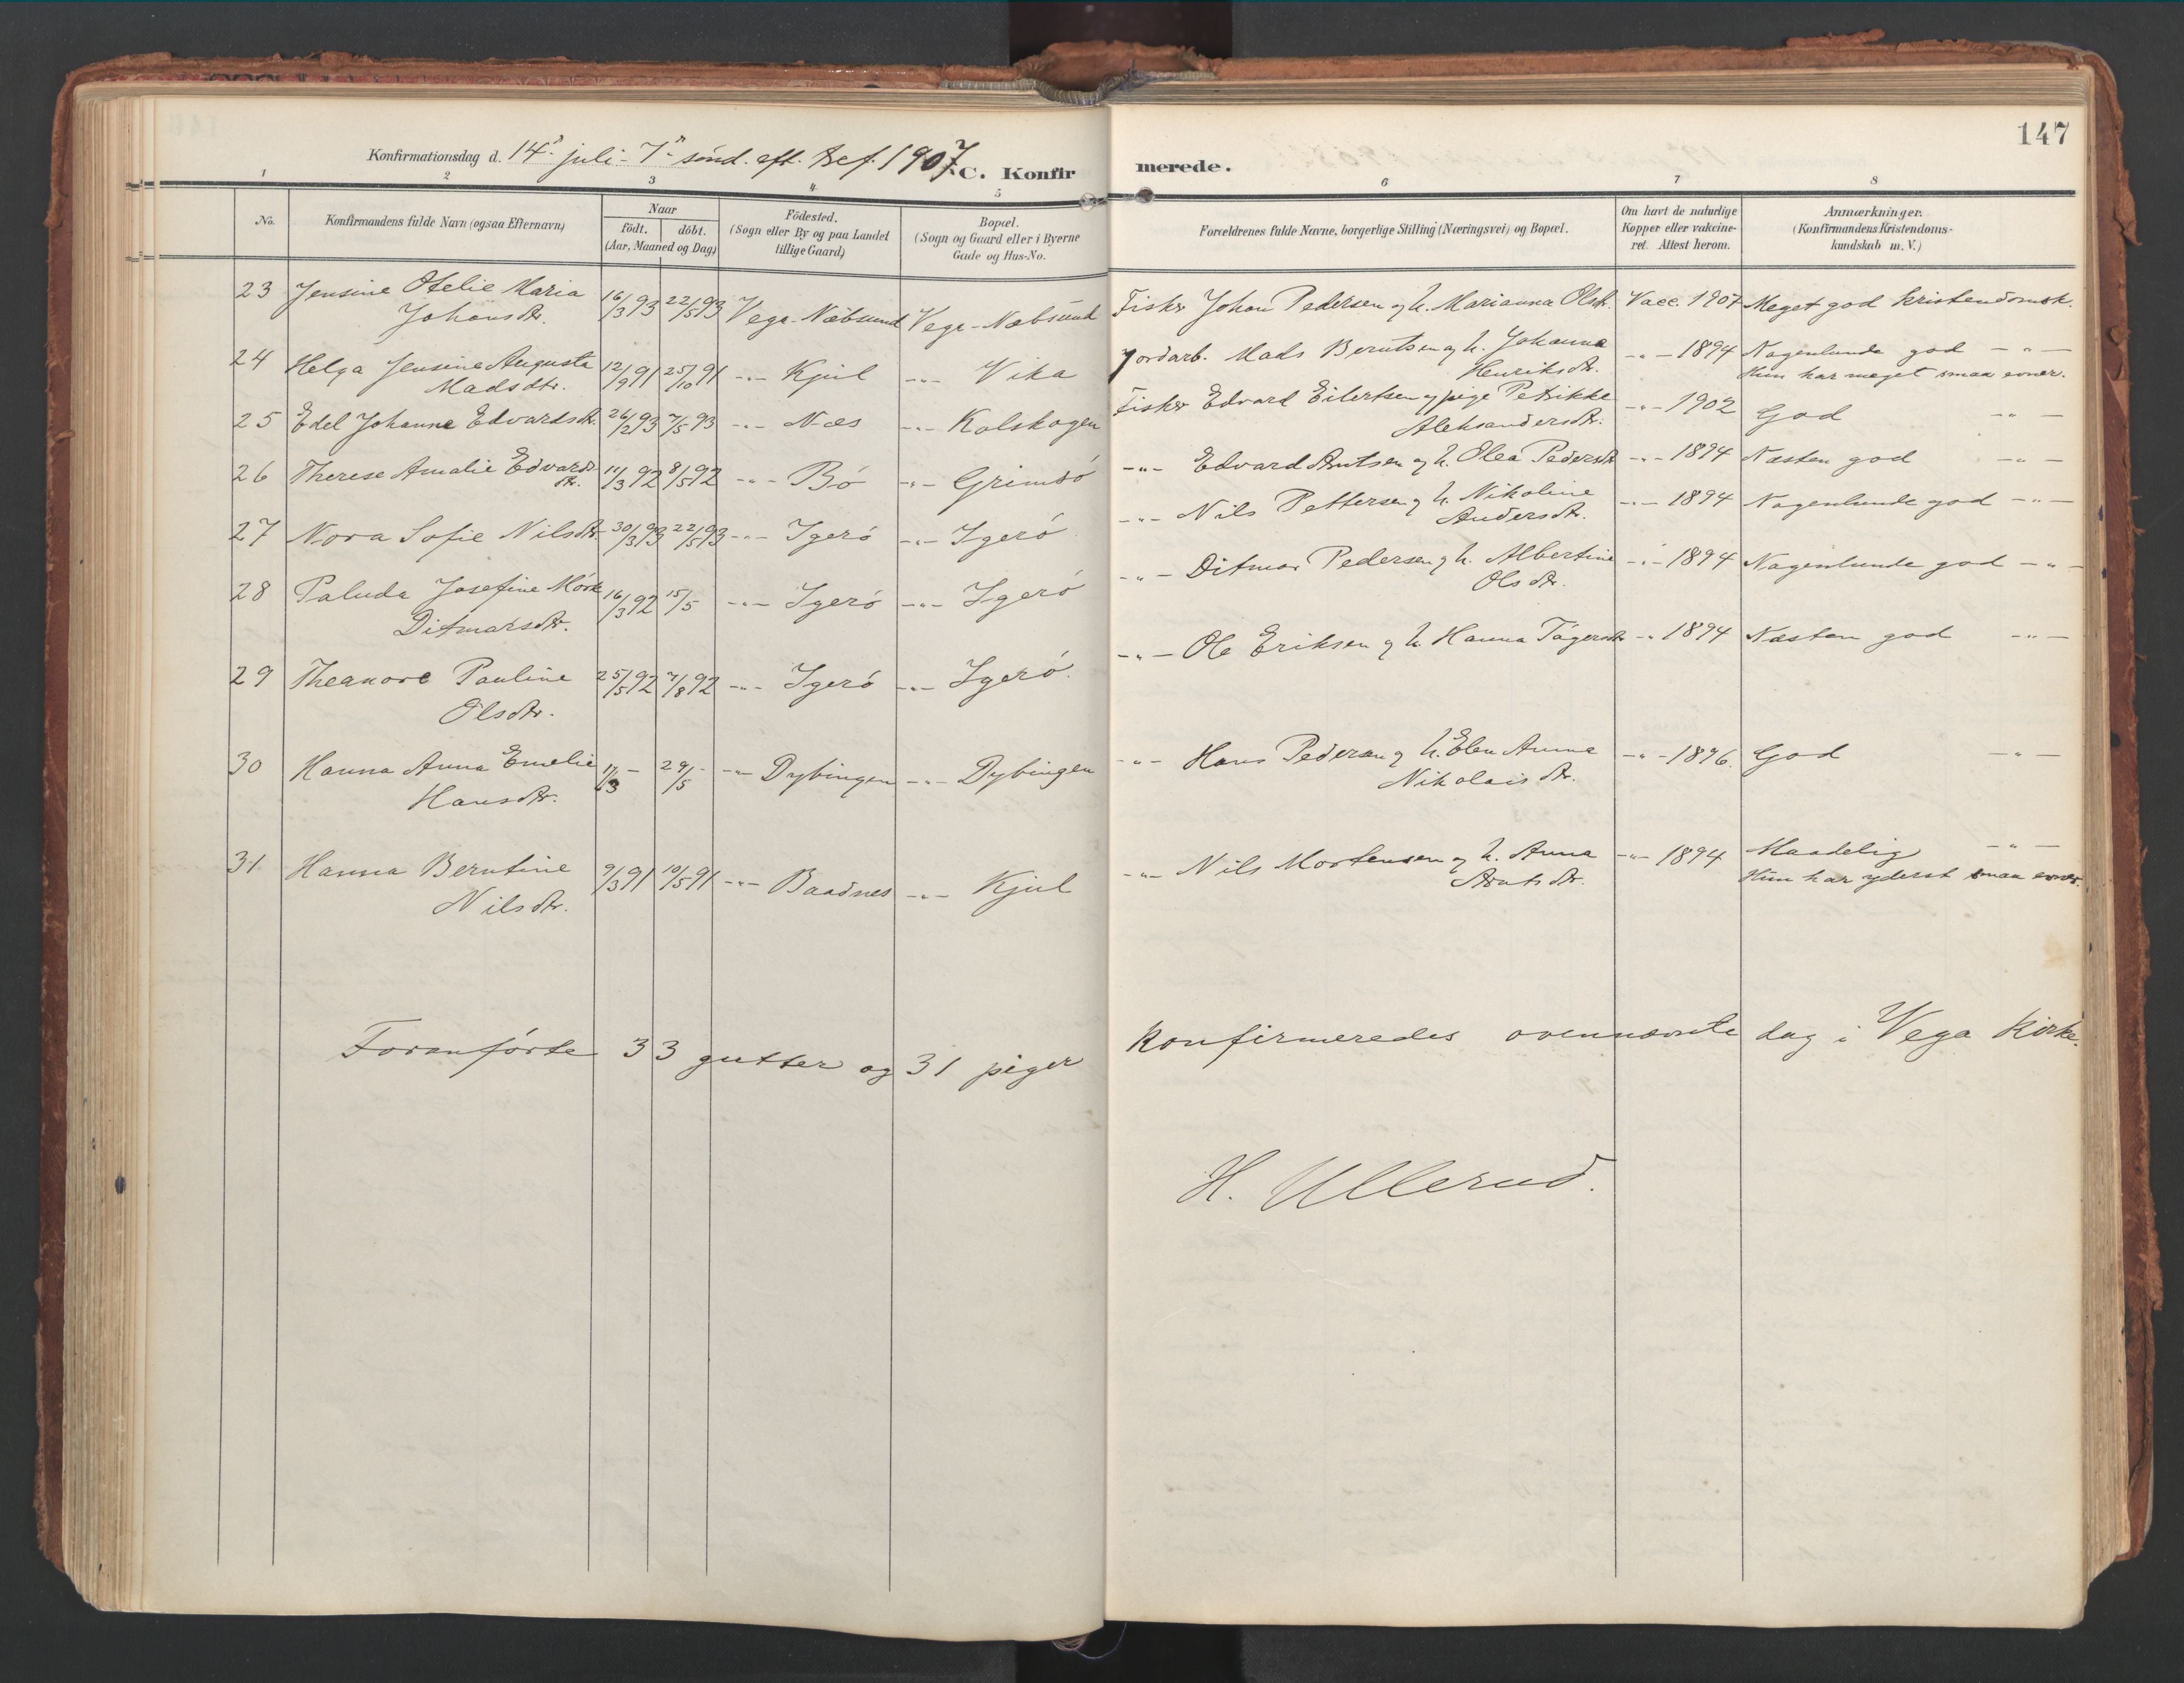 147
Konfirmationsdag d. 14de juli - 7de sönd. eft. tref. 1907. C. Konfir merede.
1 2 3 4 5 6 7 8
No.
Konfirmandens fulde Navn (ogsaa Efternavn)
Naar
födt. döbt.
(Aar, Maaned og Dag)
Födested.
(Sogn eller By og paa Landet
tillige Gaard)
Bopæl.
(Sogn og Gaard eller i Byerne
Gade og Hus-No.
Forældrenes fulde Navne, borgerlige Stilling (Næringsvei) og Bopæl.
Om havt de naturlige
Kopper eller vakcine-
ret. Attest herom.
Anmærkninger.
(Konfirmandens Kristendoms-
kundskab m. V.)
23 Jensine Otelie Maria 16/3 93 22/5 93 Vega-Näbsund Vega-Näbsund Fisker Johan Pedersen og h. Marianna Olsdr. Vacc. 1907 Meget god kristendomsk.
Johansdtr.
24 Helga Jensine Augusta 12/9 91 25/10 91 -"- Kjul -"- Vika Jordarb. Mads Berntsen og h. Johanna -"- 1894 Nogenlunde god -"-
Madsdtr. Henriksdtr. Hun har meget smaa evner.
25 Edel Johanne Edvardsdtr. 26/2 93 7/5 93 -"- Næs -"- Kolskogen Fisker Edvard Eilertsen og pige Petrikke -"- 1902 God -"-
Aleksandersdtr.
26 Therese Amalie Edvards 11/3 92 8/5 92 -"- Bö -"- Grimsö -"- Edvard Arntsen og h. Olea Pedersdtr. -"- 1894 Næsten god -"-
dtr.
27 Nora Sofie Nilsdtr. 30/3 93 22/5 93 -"- Igerö -"- Igerö -"- Nils Pettersen og h. Nikoline -"- 1894 Nogenlunde god -"-
Andersdtr.
28 Paluda Josefine Mörk 16/3 92 15/5 -"- Igerö -"- Igerö -"- Ditmar Pedersen og h. Albertine -"- 1894 Nogenlunde god -"-
Ditmarsdtr. Olsdtr.
29 Theanore Pauline 25/5 92 7/8 92 -"- Igerö -"- Igerö. -"- Ole Eriksen og h. Hanna Tögersdtr. -"- 1894 Næsten god -"-
Olsdtr.
30 Hanna Anna Emelie 11/3 - 29/5 - -"- Dybingen -"- Dybingen -"- Hans Pedersen og h. Elen Anna -"- 1896. God -"-
Hansdtr. Nikolaisdtr.
31 Hanna Berntine 9/3 91 10/5 91 -"- Baadnes -"- Kjul -"- Nils Mortensen og h. Anna -"- 1894 Maadelig -"-
Nilsdtr. Arntsdtr. Hun har yderst smaa evner.
Foranförte 33 gutter og 31 piger konfirmeredes ovennævnte dag i Vega Kirke.
H. Ullerud.